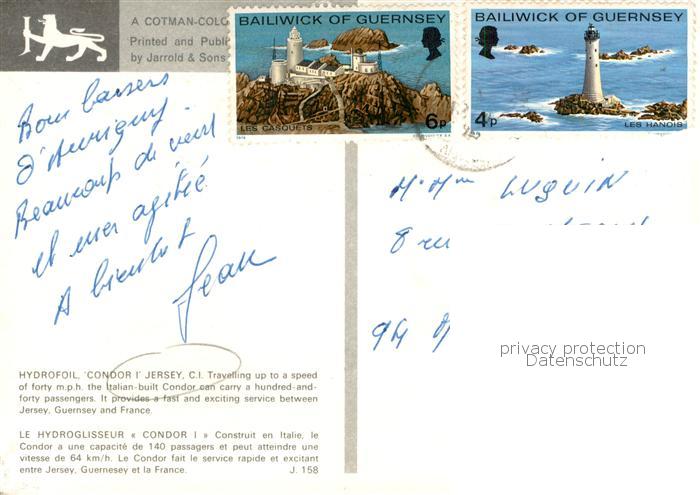 A COTMAN-COLO
Printed and Publi
by Jarrold & Sons
BAILIWICK OF GUERNSEY
LES CASQUETS
6p
BAILIWICK OF GUERNSEY
4p
LES HANOIS
Bons baisers
d'Aurigny.
Beaucoup de vent
et mer agitée
A bientôt
Jean
M. Mme LUQUIN
8 rue
94
privacy protection
Datenschutz
HYDROFOIL, 'CONDOR I' JERSEY, C.I. Travelling up to a speed
of forty m.p.h. the Italian-built Condor can carry a hundred-and-
forty passengers. It provides a fast and exciting service between
Jersey, Guernsey and France.
LE HYDROGLISSEUR « CONDOR I » Construit en Italie, le
Condor a une capacité de 140 passagers et peut atteindre une
vitesse de 64 km/h. Le Condor fait le service rapide et excitant
entre Jersey, Guernesey et la France. J. 158